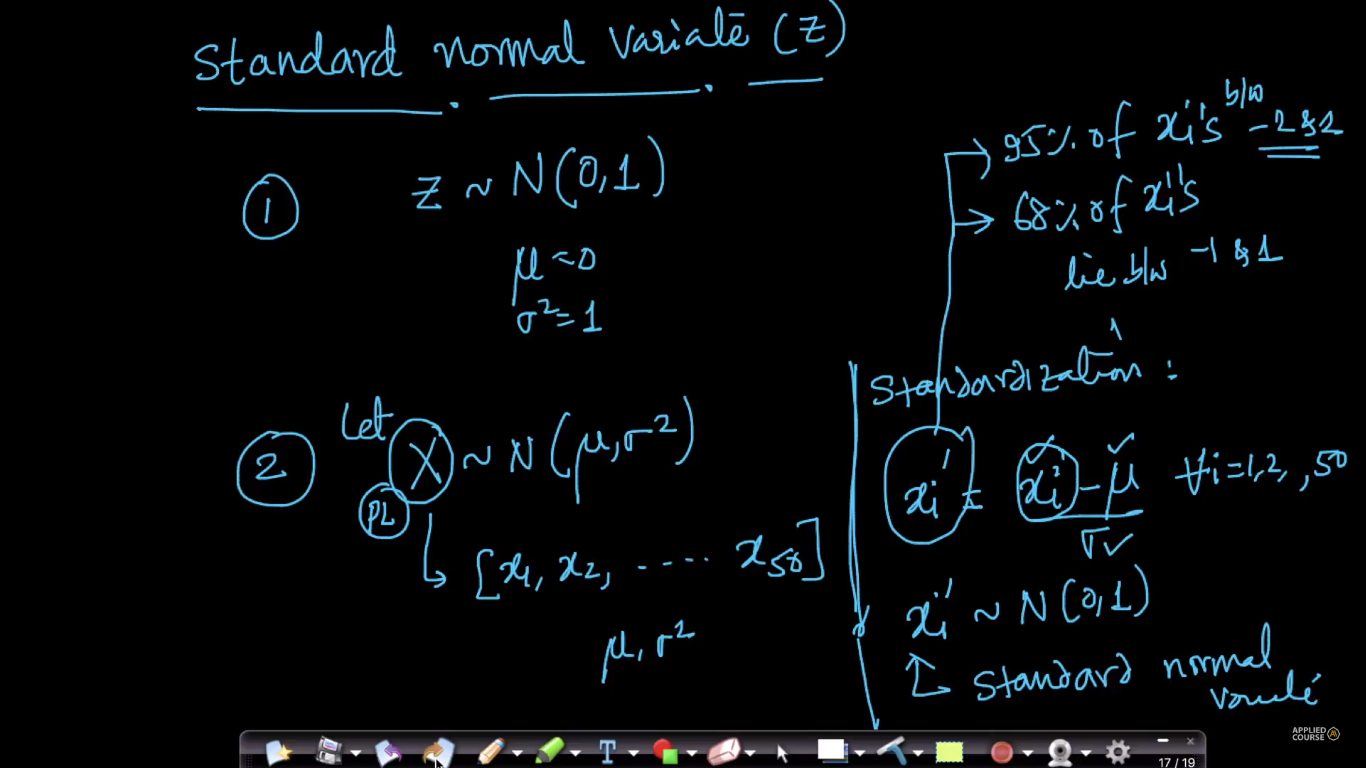 Standard normal variate (Z)
① Z ~ N(0,1)
μ = 0
σ² = 1
② Let X ~ N(μ, σ²)
PL
[x₁, x₂, ---- x₅₀]
μ, σ²
→ 95% of xᵢ's b/w -2 & 2
→ 68% of xᵢ's
lie b/w -1 & 1
Standardization :
xᵢ' = xᵢ - μ ∀i=1,2, ,50
σ
xᵢ' ~ N(0,1)
Standard normal
variate
APPLIED
COURSE
T
17 / 19